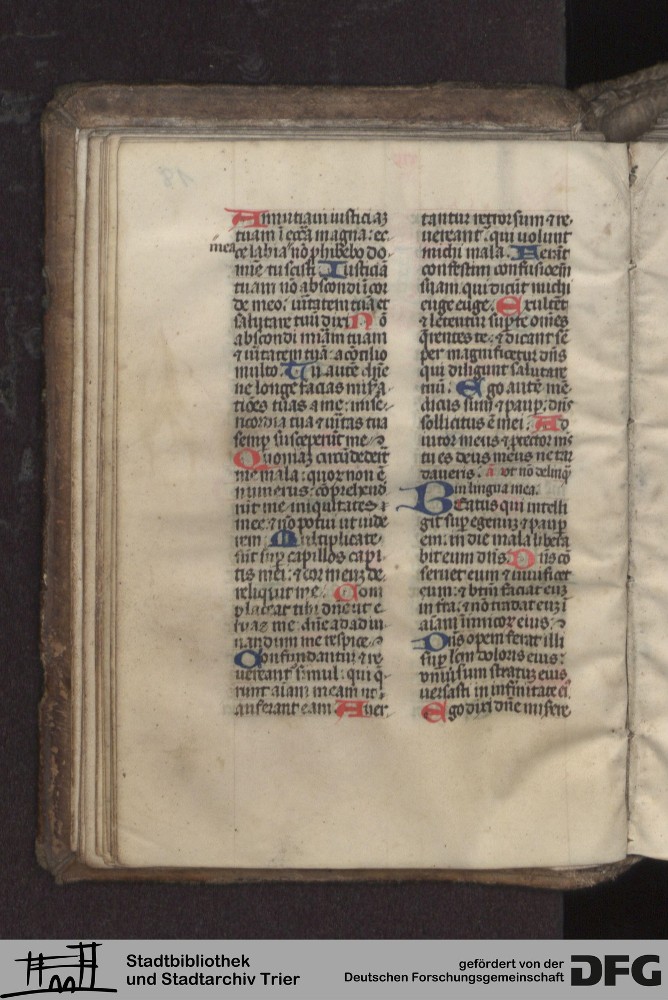 Annutiaui iusticiaz
tuam ī ecc̄a magna: ec
mea
ce labia nō ꝓhibebo do-
mīe tu scisti. Iusticiā
tuam nō abscondi ī cor
de meo: ūitatem tuā et
salutare tuū dixi. Nō
abscondi miām tuam
⁊ ūitatem tuā: a cōcilio
multo. Tu autē dn̄e
ne longe facias mīsa
tiōes tuas a me: mise
ricordia tua ⁊ ūitas tua
semꝑ susceperūt me.
Quoniaz circūdederūt
me mala: quor non ē
numerus: cōprehend
rūt me iniquitates
mee: ⁊ nō potui ut uide
rem. Multiplicate
sūt suꝑ capillos capi
tis mei: ⁊ cor meuz de
reliquit me. Com
placeat tibi dn̄e ut e
ruas me: dn̄e ad adiu
uandum me respice.
Confundantur ⁊ re
uereant simul: qui q̄
runt aīam meam ut
auferant eam. Auer
tantur retrorsum ⁊ re
uereant: qui uolunt
michi mala. Ferāt
confestim confusioēm
suam: qui dicūt michi
euge euge. Exultēt
⁊ letentur suꝑ te om̄es
q̄rentes te: ⁊ dicant sē
per magnificetur dn̄s
qui diligunt salutare
tuū. Ego autē mē
dicus sum ⁊ pauꝑ: dn̄s
sollicitus ē mei. Ad
iutor meus ⁊ ꝓtector m̄s
tu es deus meus ne tar
daueris. a ut nō delinq̄
in lingua mea.
Beatus qui intelli
git suꝑ egenuz ⁊ pauꝑ
em: in die mala libera
bit eum dn̄s. Dn̄s cō
seruet eum ⁊ uiuificet
eum: ⁊ btm̄ faciat euz
in tra: ⁊ nō tradat euz ī
aīam īimicor eius.
Dn̄s opem ferat illi
suꝑ lcm̄ doloris eius:
uniūsum stratuz eius
uersasti in infirmitate ei
Ego dixi dn̄e misere
Stadtbibliothek
und Stadtarchiv Trier
gefördert von der
Deutschen Forschungsgemeinschaft
DFG